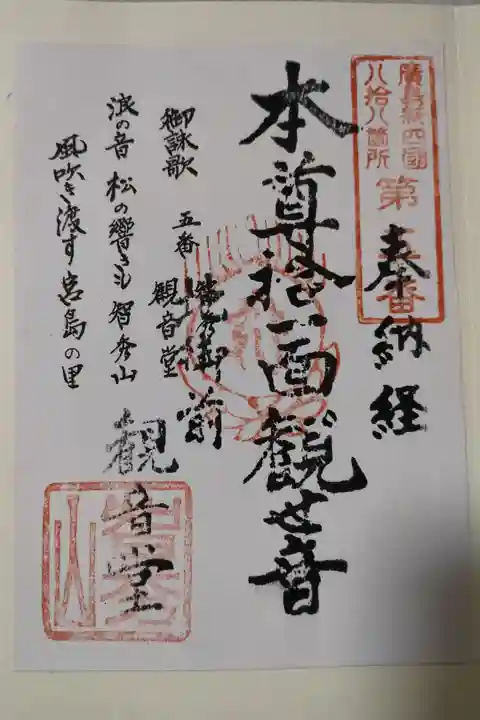 廣島新四國
八拾八箇所
第五番
奉納経
本尊拾一面觀世音
御前
御詠歌 五番 観音堂
浪の音 松の響きも 智秀山
風吹き渡す 宮島の里
観音堂